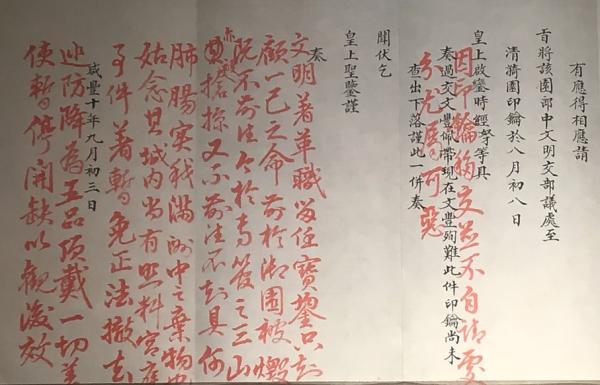 有應得相應請
旨將該園郎中文明交部議處至
清漪園印鑰於八月初八日
皇上啟鑾時經奴才等具
奏過交文豐佩帶現在文豐殉難此件印鑰尚未
查出下落謹此一併奏
交並不自請處
分尤屬可惡
聞伏乞
皇上聖鑒謹
奏
文明著革職留任寶鋆只知
顧一己之命前於御園被燬
既不前往今於專管之三山
亦被搶掠又不前往不知具何
肺腸實我滿洲中之棄物也
姑念其城內尚有照料宮庭
事件著暫免正法撤去
巡防降為五品頂戴一切差
使暫停開缺以觀後效
咸豐十年九月初三日